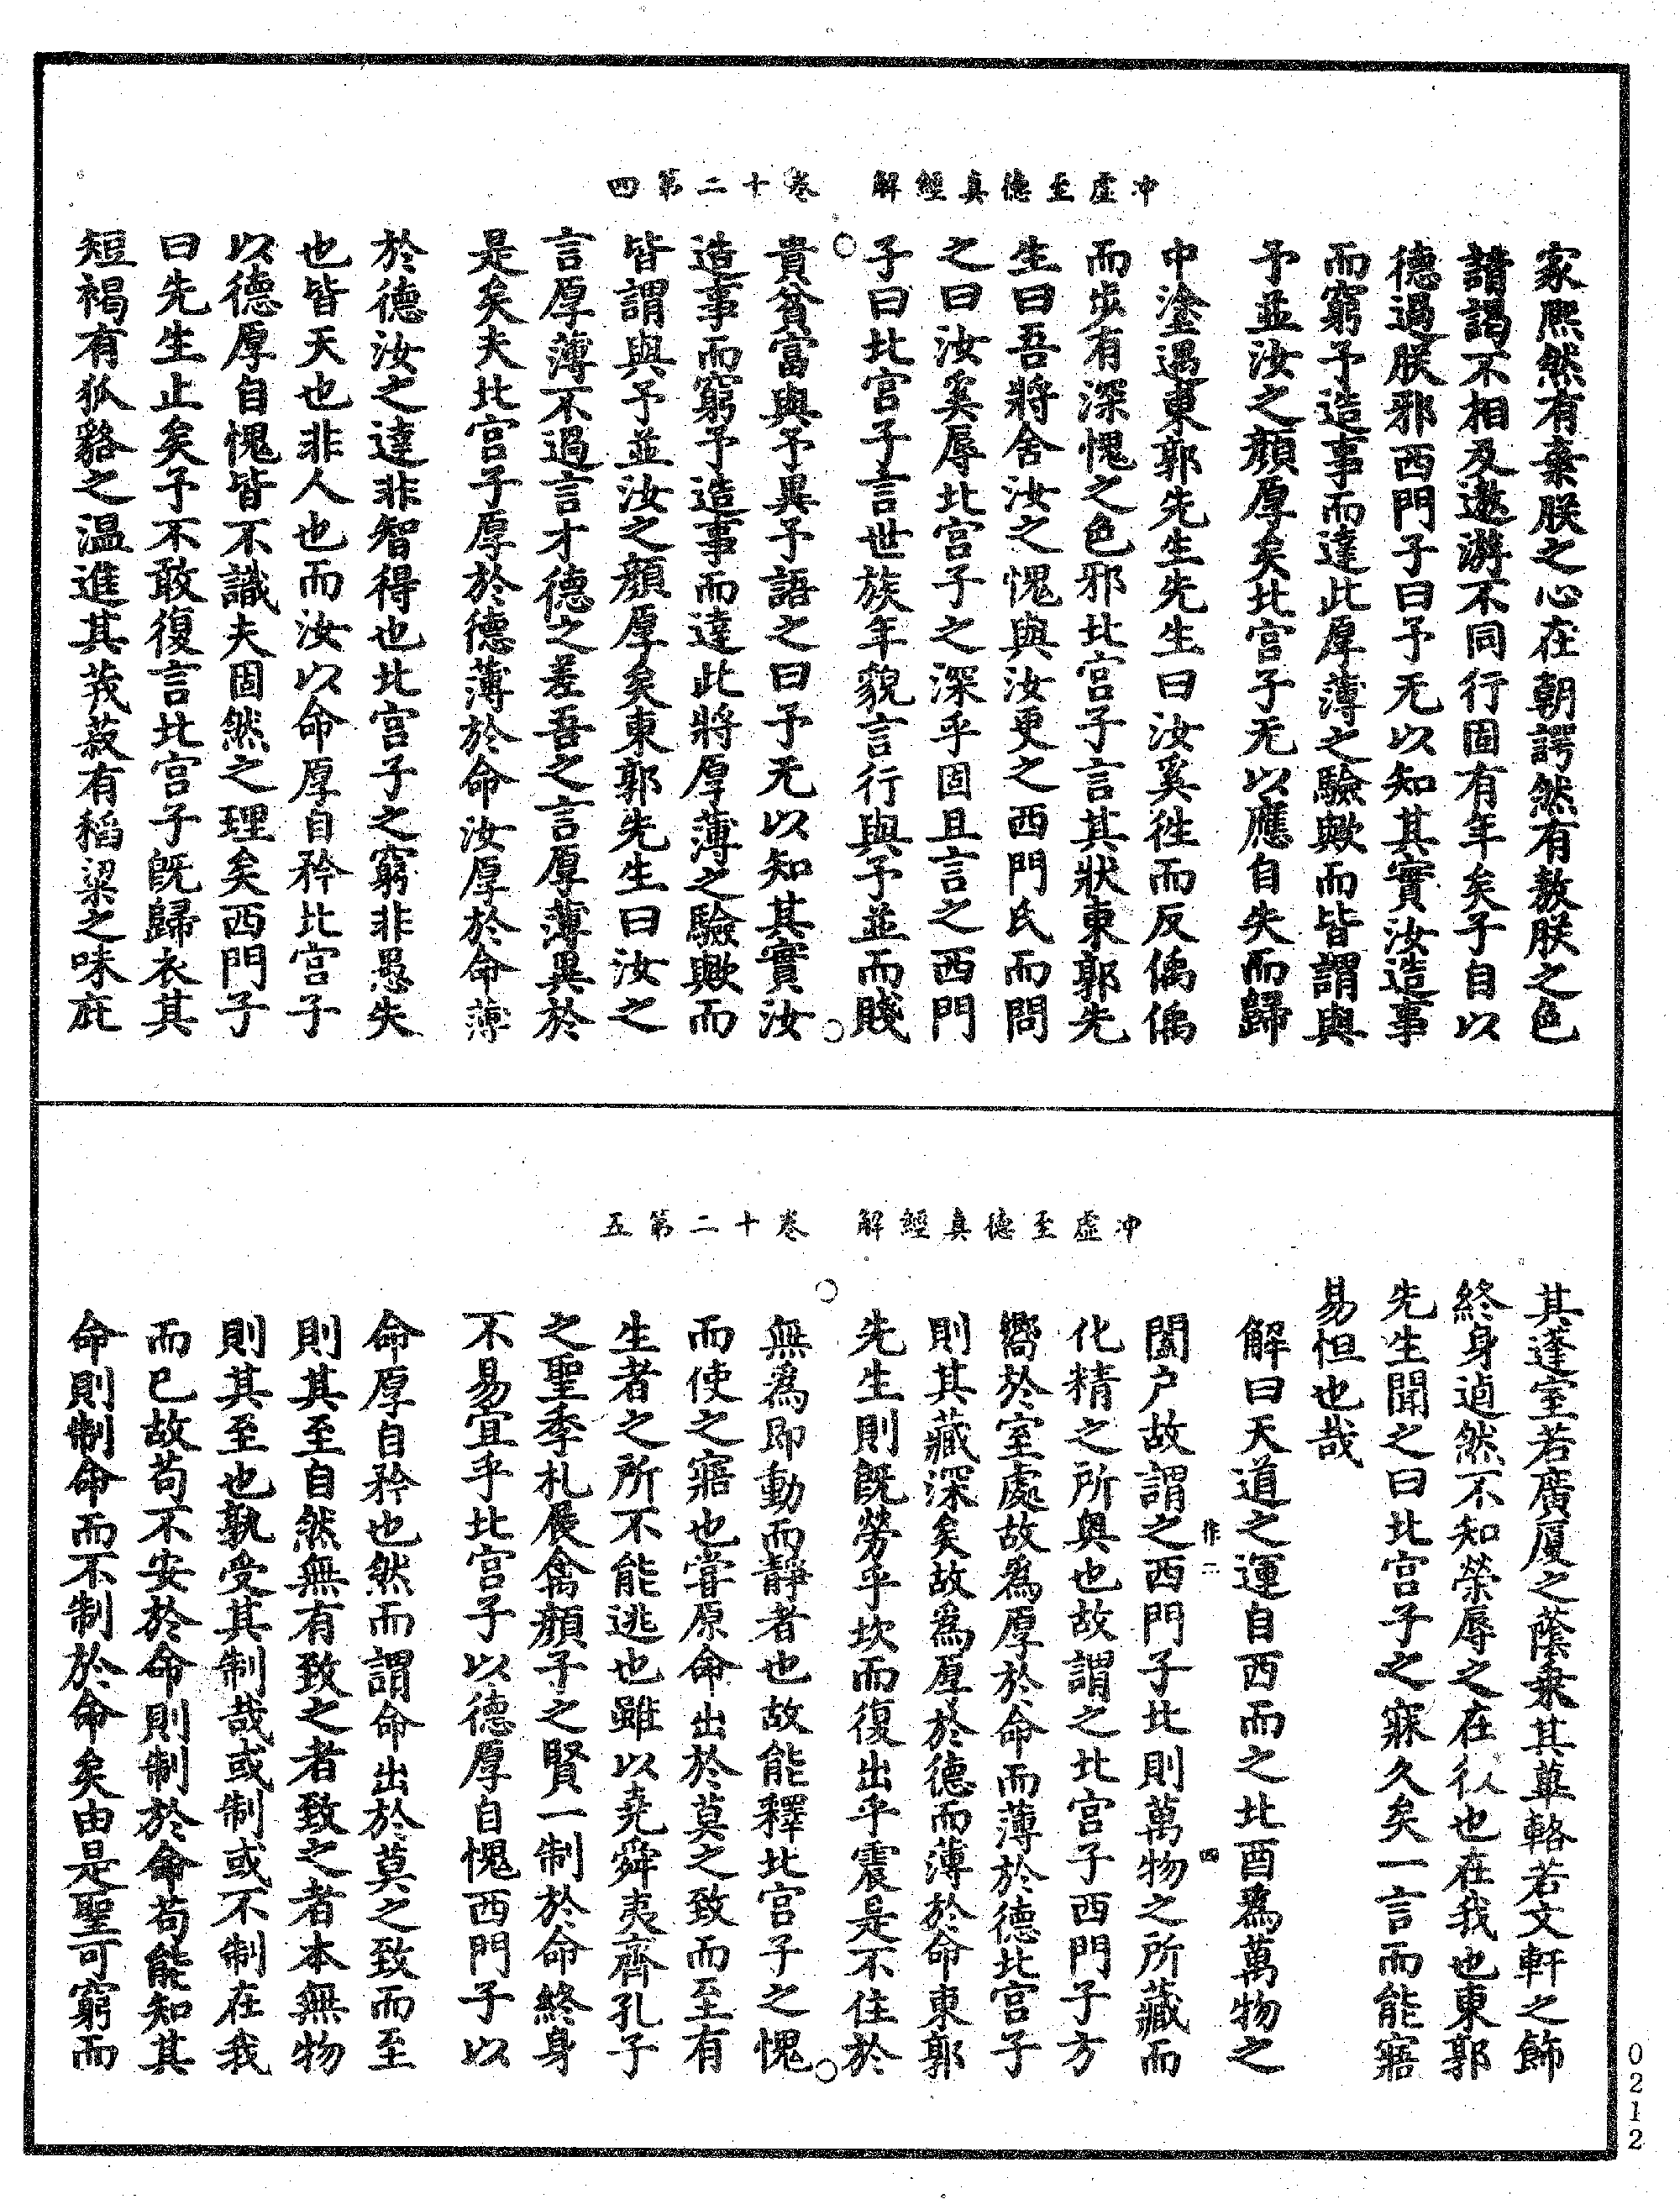 冲虛至德真經解　卷十二第四
家熙然有棄朕之心在朝諤然有敖朕之色
請謁不相及遨游不同行固有年矣子自以
德過朕邪西門子曰予无以知其實汝造事
而窮予造事而達此厚薄之驗歟而皆謂與
予並汝之顏厚矣北宮子无以應自失而歸
中塗遇東郭先生先生曰汝奚徃而反偊偊
而步有深愧之色邪北宮子言其狀東郭先
生曰吾將舍汝之愧與汝更之西門氏而問
之曰汝奚辱北宮子之深乎固且言之西門
子曰北宮子言世族年貌言行與予並而賤
貴貧富與予異予語之曰予无以知其實汝
造事而窮予造事而達此將厚薄之驗歟而
皆謂與予並汝之顏厚矣東郭先生曰汝之
言厚薄不過言才德之差吾之言厚薄異於
是矣夫北宮子厚於德薄於命汝厚於命薄
於德汝之達非智得也北宮子之窮非愚失
也皆天也非人也而汝以命厚自矜北宮子
以德厚自愧皆不識夫固然之理矣西門子
曰先生止矣予不敢復言北宮子既歸衣其
短褐有狐貉之溫進其茙菽有稻粱之味庇
冲虛至德真經解　卷十二第五
其蓬室若廣厦之蔭乗其蓽輅若文軒之飾
終身逌然不知榮辱之在彼也在我也東郭
先生聞之曰北宮子之寐久矣一言而能寤
易怛也哉
解曰天道之運自西而之北酉為萬物之
作二　四
闔户故謂之西門子北則萬物之所藏而
化精之所輿也故謂之北宮子西門子方
嚮於室處故為厚於命而薄於德北宮子
則其藏深矣故為厚於德而薄於命東郭
先生則既勞乎坎而復出乎震是不住於
無為即動而靜者也故能釋北宮子之愧
而使之寤也嘗原命出於莫之致而至有
生者之所不能逃也雖以堯舜夷齊孔子
之聖季札展禽顏子之賢一制於命終身
不易宜乎北宮子以德厚自愧西門子以
命厚自矜也然而謂命出於莫之致而至
則其至自然無有致之者致之者本無物
則其至也孰受其制哉或制或不制在我
而已故苟不安於命則制於命苟能知其
命則制命而不制於命矣由是聖可窮而
0212